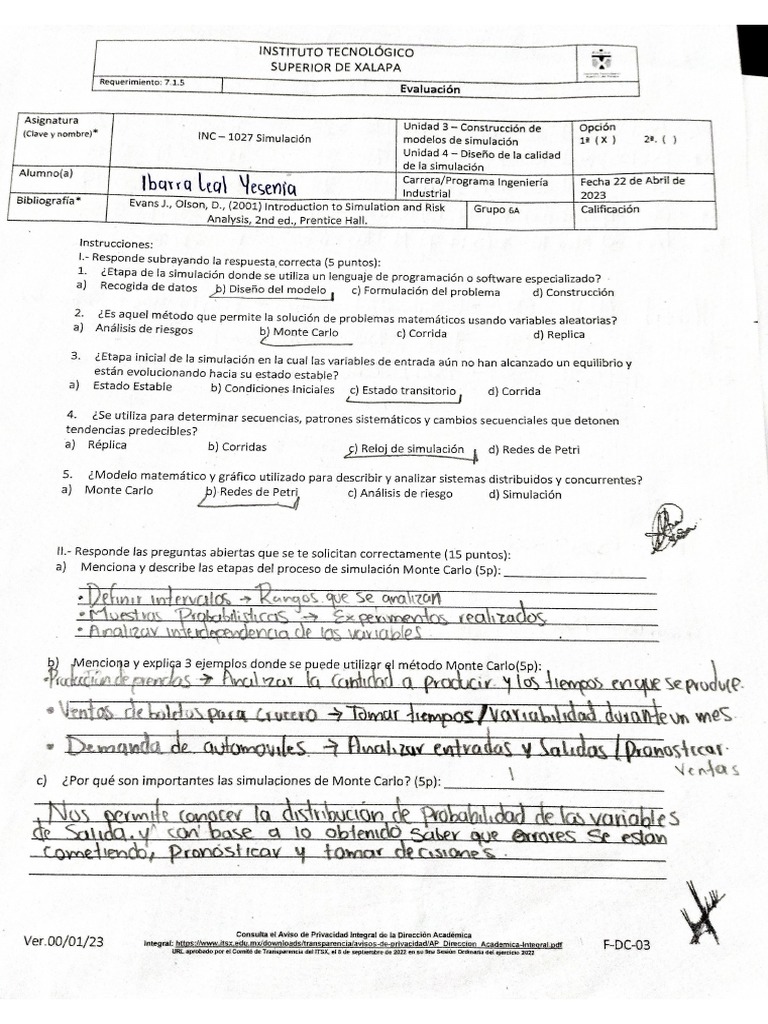 INSTITUTO TECNOLÓGICO
SUPERIOR DE XALAPA
Requerimiento: 7.1.5
Evaluación
Asignatura
(Clave y nombre)*
INC – 1027 Simulación
Unidad 3 – Construcción de
modelos de simulación
Unidad 4 – Diseño de la calidad
de la simulación
Opción
1ª (X) 2ª. ( )
Alumno(a)
Ibarra Leal Yesenia
Carrera/Programa Ingeniería
Industrial
Fecha 22 de Abril de
2023
Bibliografía*
Evans J., Olson, D., (2001) Introduction to Simulation and Risk
Analysis, 2nd ed., Prentice Hall.
Grupo 6A
Calificación
Instrucciones:
I.- Responde subrayando la respuesta correcta (5 puntos):
1. ¿Etapa de la simulación donde se utiliza un lenguaje de programación o software especializado?
a) Recogida de datos b) Diseño del modelo c) Formulación del problema d) Construcción
2. ¿Es aquel método que permite la solución de problemas matemáticos usando variables aleatorias?
a) Análisis de riesgos b) Monte Carlo c) Corrida d) Replica
3. ¿Etapa inicial de la simulación en la cual las variables de entrada aún no han alcanzado un equilibrio y
están evolucionando hacia su estado estable?
a) Estado Estable b) Condiciones Iniciales c) Estado transitorio d) Corrida
4. ¿Se utiliza para determinar secuencias, patrones sistemáticos y cambios secuenciales que detonen
tendencias predecibles?
a) Réplica b) Corridas c) Reloj de simulación d) Redes de Petri
5. ¿Modelo matemático y gráfico utilizado para describir y analizar sistemas distribuidos y concurrentes?
a) Monte Carlo b) Redes de Petri c) Análisis de riesgo d) Simulación
II.- Responde las preguntas abiertas que se te solicitan correctamente (15 puntos):
a) Menciona y describe las etapas del proceso de simulación Monte Carlo (5p):
• Definir intervalos → Rangos que se analizan
• Muestras Probabilisticas → Experimentos realizados
• Analizar interdependencia de las variables
b) Menciona y explica 3 ejemplos donde se puede utilizar el método Monte Carlo(5p):
• Producción de prendas → Analizar la cantidad a producir y los tiempos en que se produce.
• Ventas de boletos para crucero → Tomar tiempos/variabilidad durante un mes.
• Demanda de automoviles → Analizar entradas y Salidas/Pronosticar
ventas
c) ¿Por qué son importantes las simulaciones de Monte Carlo? (5p):
Nos permite conocer la distribución de Probabilidad de las variables
de Salida. y con base a lo obtenido saber que errores se estan
cometiendo, Pronósticar y tomar decisiones.
Ver.00/01/23
Consulta el Aviso de Privacidad Integral de la Dirección Académica
Integral: https://www.itsx.edu.mx/downloads/transparencia/avisos-de-privacidad/AP_Direccion_Academica-Integral.pdf
URL aprobado por el Comité de Transparencia del ITSX, el 8 de septiembre de 2022 en su 9na Sesión Ordinaria del ejercicio 2022
F-DC-03